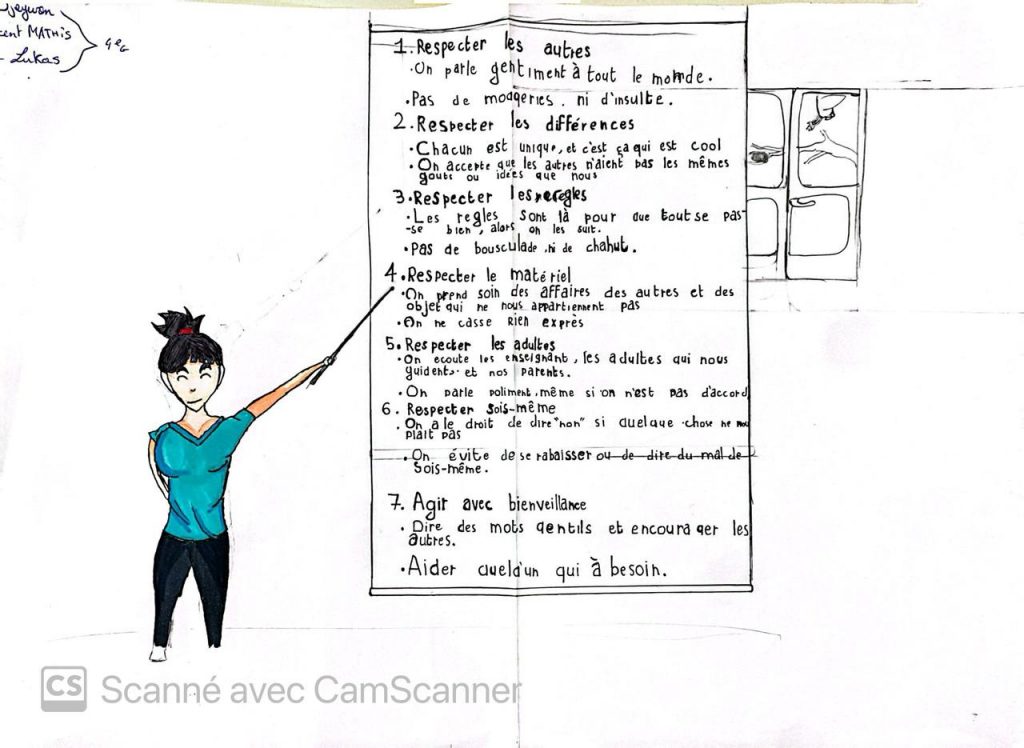 MATHIS
Lukas
1. Respecter les autres
• On parle gentiment à tout le monde.
• Pas de moqueries, ni d'insulte.
2. Respecter les différences
• Chacun est unique, et c'est ça qui est cool
• On accepte que les autres n'aient pas les mêmes
gouts ou idées que nous
3. Respecter les regles
• Les regles sont là pour que tout se pas-
-se bien, alors on les suit.
• Pas de bousculade, ni de chahut.
4. Respecter le matériel
• On prend soin des affaires des autres et des
objet qui ne nous appartiennent pas
• On ne casse rien exprès
5. Respecter les adultes
• On ecoute les enseignant, les adultes qui nous
guident, et nos parents.
• On parle poliment, même si on n'est pas d'accord
6. Respecter sois-même
• On a le droit de dire "non" si quelque chose ne nou
plait pas
• On évite de se rabaisser ou de dire du mal de
sois-même.
7. Agir avec bienveillance
• Dire des mots gentils et encourager les
autres.
• Aider quelqu'un qui à besoin.
CS Scanné avec CamScanner